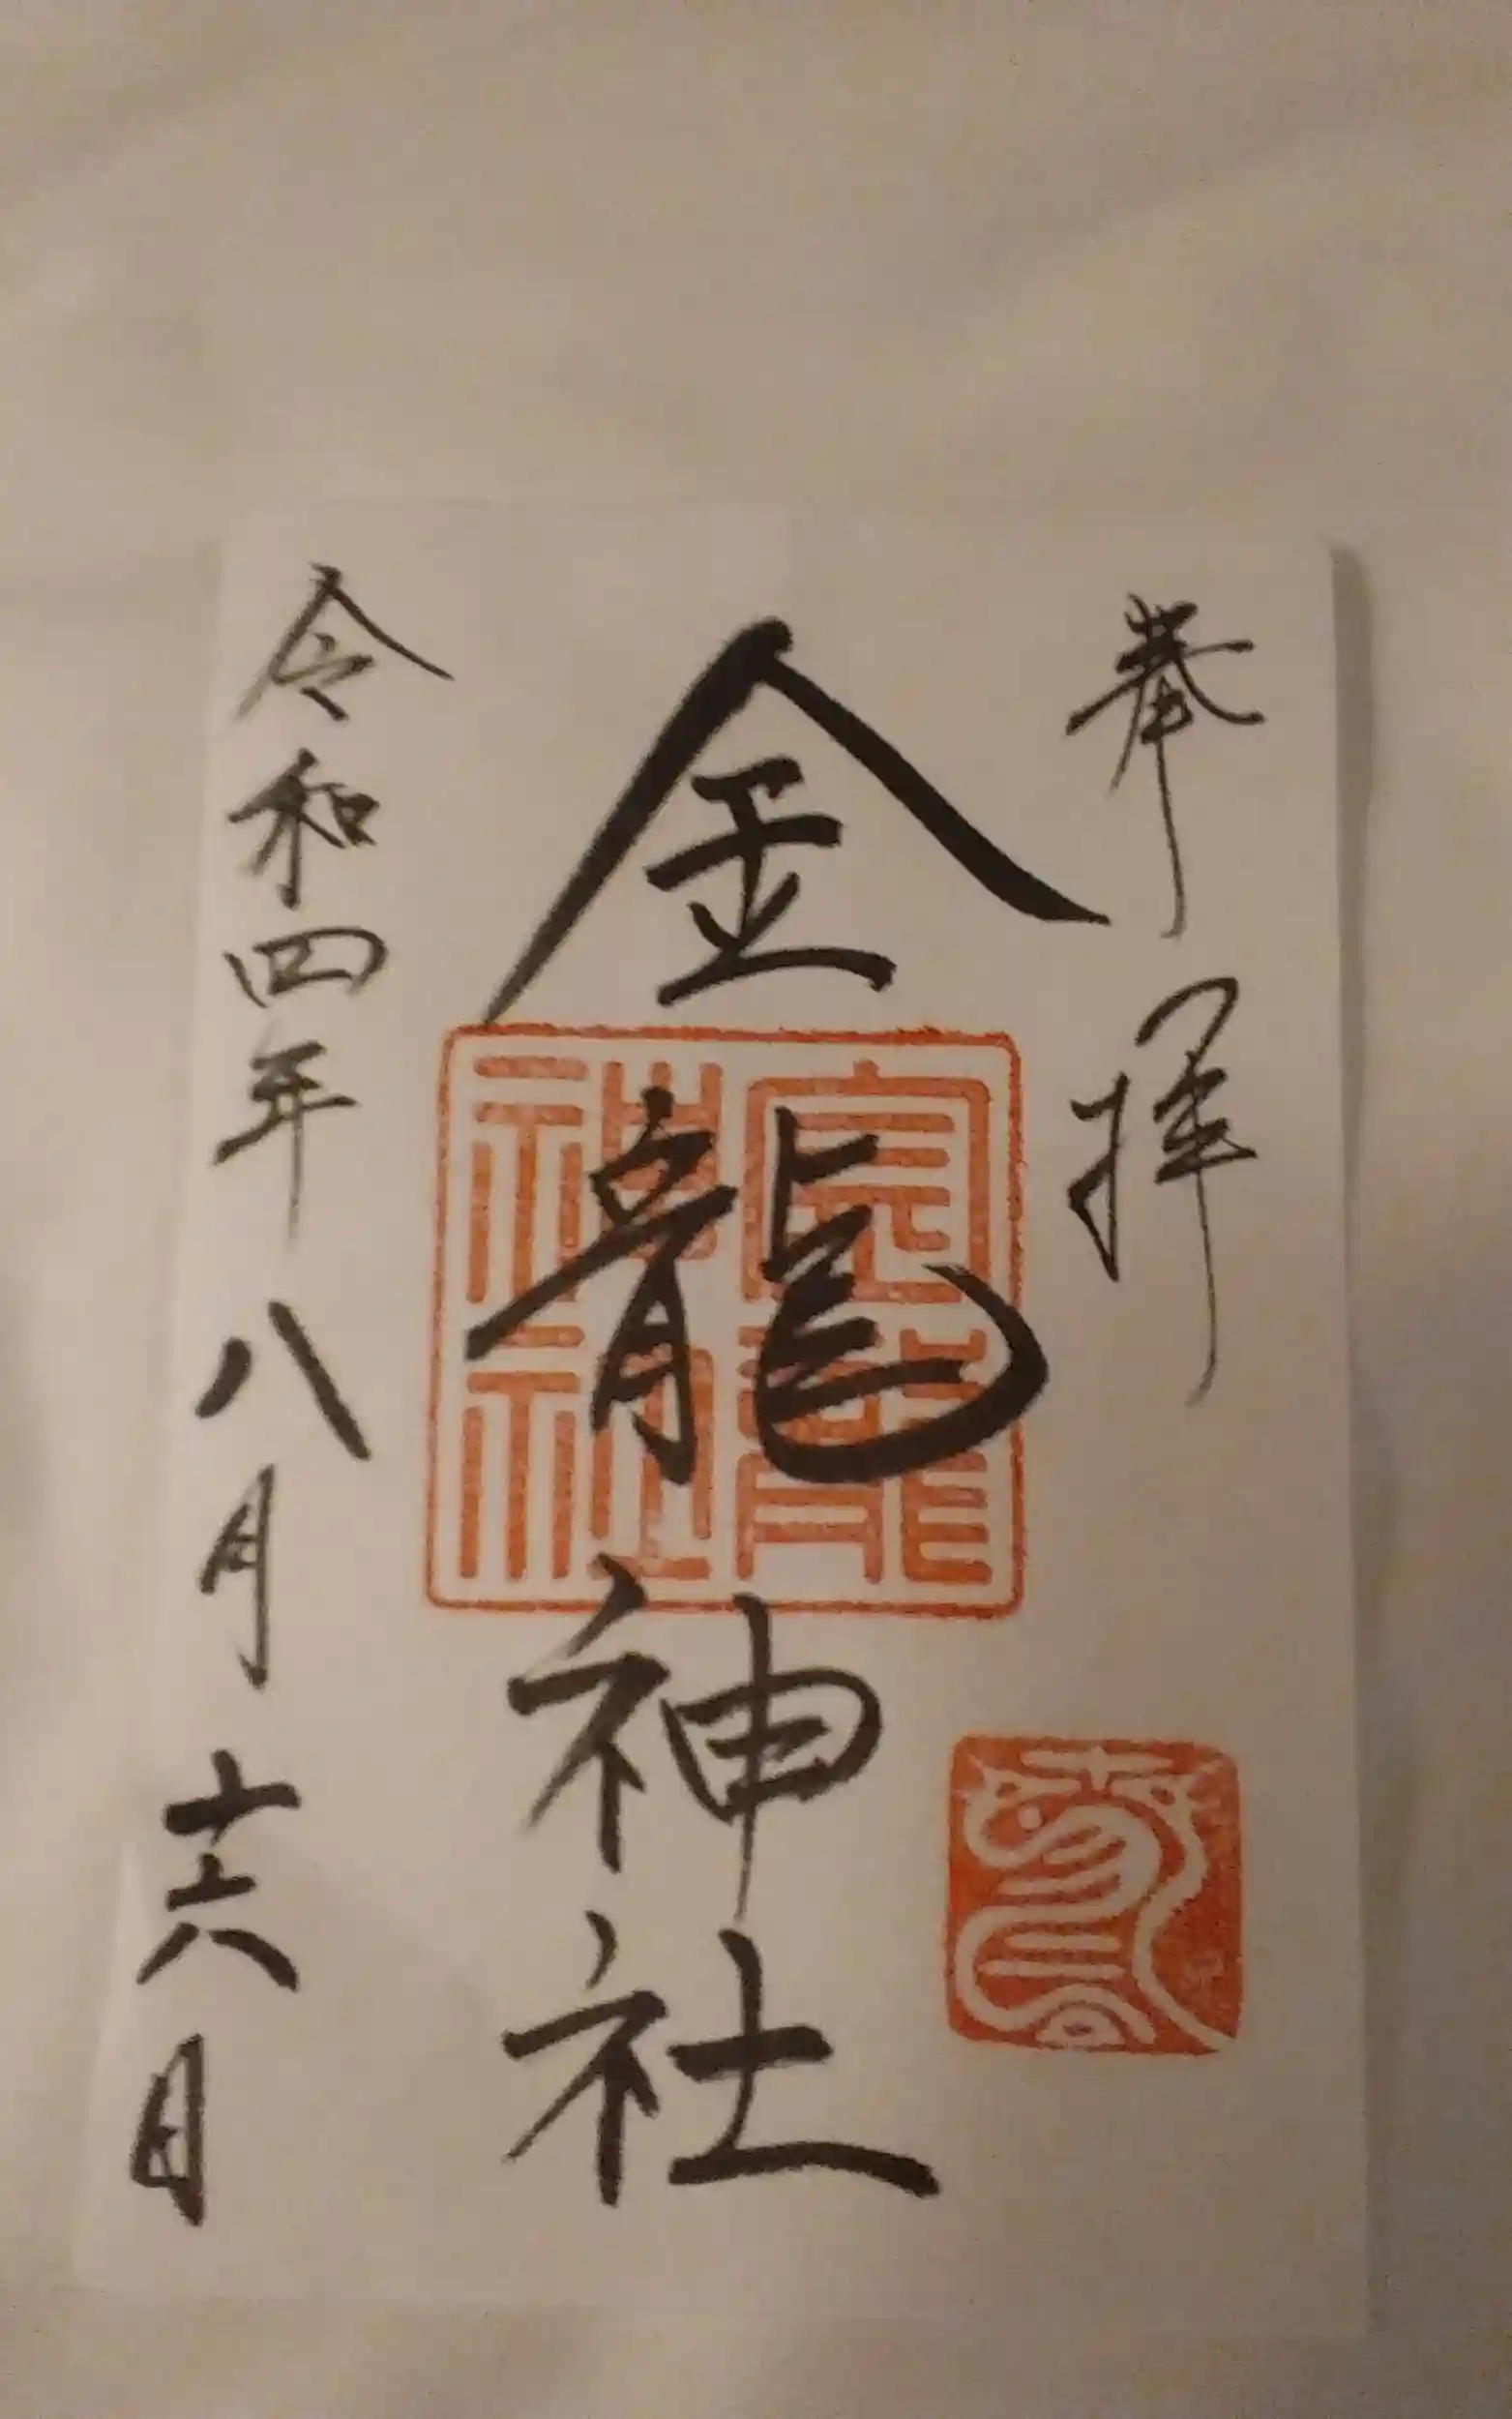 奉拝
金龍神社
龍
神社
令和四年八月十六日